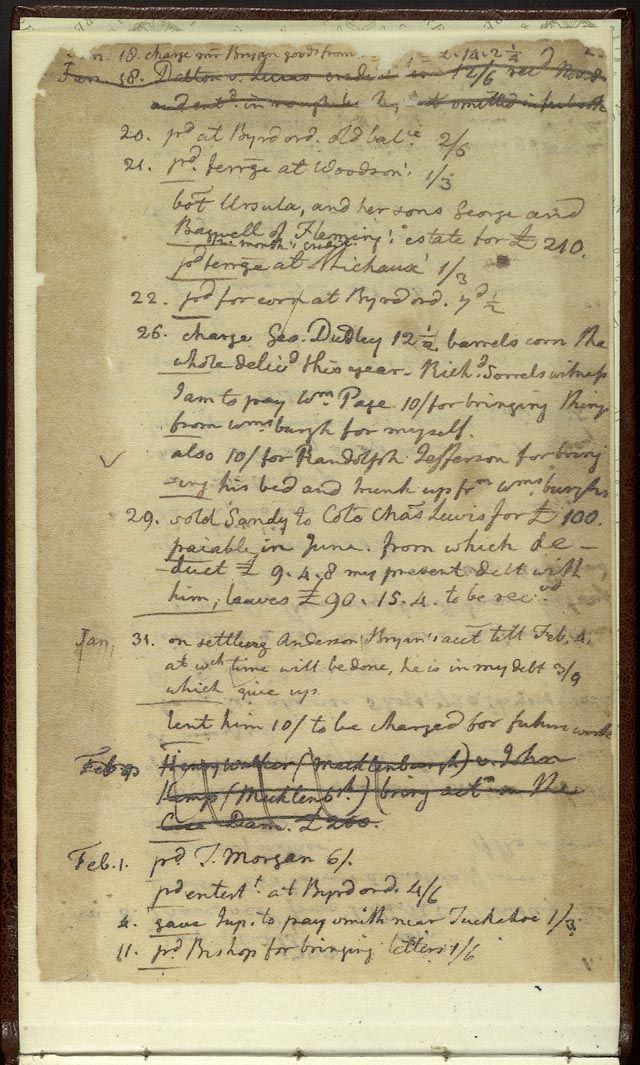 18. charge mr Bryan goods from 2-14-2 1/4
Jan 18. Dalton v. Lucas 12/6 recd Nov. 8
and entd. in omitted in feebook
20. pd at Byrd ord. old balce 2/6
21. pd. ferrge at Woodson's 1/3
bot Ursula, and her sons George and
Bagwell of Fleming's estate for £210.
12. month's credit
pd ferrge at Michaux' 1/3
22. pd for corn at Byrd ord. 7d 1/2
26. charge Geo. Dudley 12 1/2 barrels corn the
whole delivd this year. Richd. Sorrels witness
I am to pay Wm. Page 10/ for bringing things
from Wmsburgh for myself.
also 10/ for Randolph Jefferson for bring
-ing his bed and trunk up frm Wmsburgh
29. sold Sandy to Colo Chas Lewis for £100.
paiable in June. from which de-
duct £9.4.8 my present debt with
him, leaves £90.15.4. to be recvd
Jan. 31. on settling Anderson Bryan's acct till Feb. 4.
at wch time will be done, he is in my debt 3/9
which give up.
lent him 10/ to be charged for future work
Feb Henry Walker (Mecklenburgh) v. John
Kemp (Mecklenbh.) bring actn on the
Case Dam. £200.
Feb. 1. pd T. Morgan 6/.
pd entertt. at Byrd ord. 4/6
4. gave Jup. to pay smith near Tuckahoe 1/3
11. pd. Bishop for bringing letters 1/6